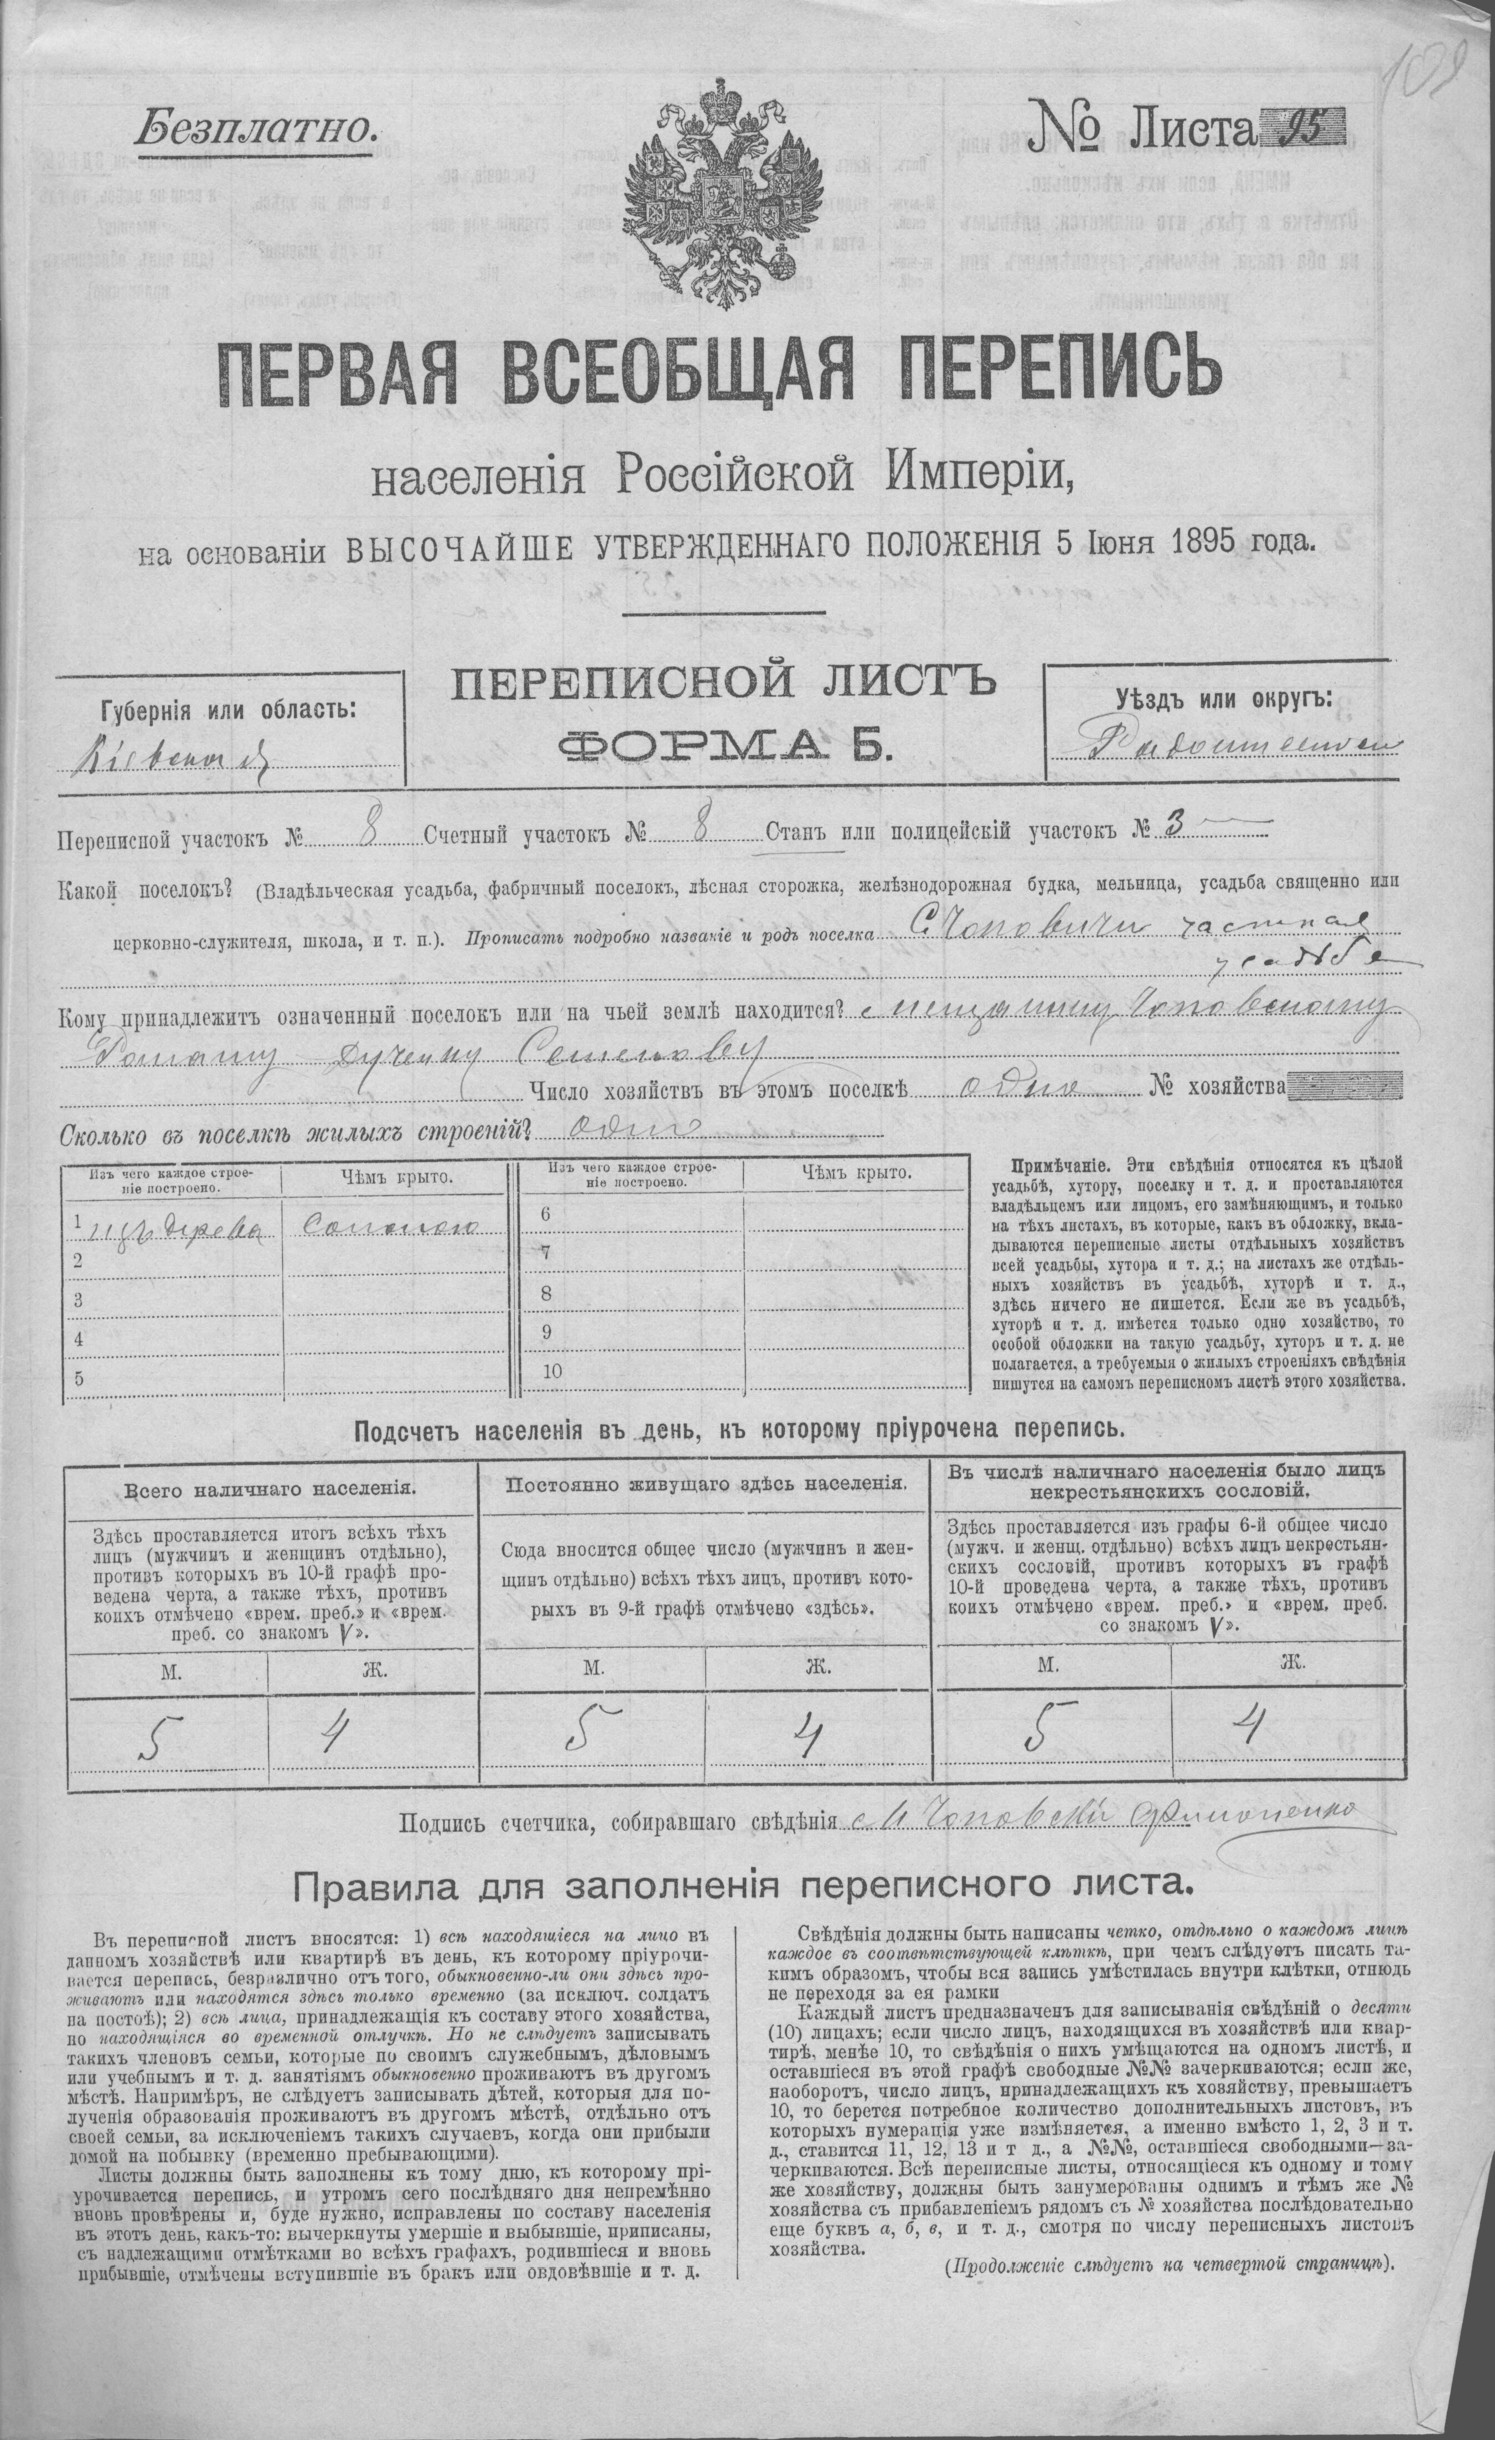 109
Безплатно.
№ Листа 95
ПЕРВАЯ ВСЕОБЩАЯ ПЕРЕПИСЬ
населенія Россійской Имперіи,
на основаніи ВЫСОЧАЙШЕ УТВЕРЖДЕННАГО ПОЛОЖЕНІЯ 5 Іюня 1895 года.
ПЕРЕПИСНОЙ ЛИСТЪ
ФОРМА Б.
Губернія или область:
Кіевская
Уѣздъ или округъ:
Переписной участокъ № 8 Счетный участокъ № 8 Станъ или полицейскій участокъ № 3
Какой поселокъ? (Владѣльческая усадьба, фабричный поселокъ, лѣсная сторожка, желѣзнодорожная будка, мельница, усадьба священно или
церковно-служителя, школа, и т. п.). Прописать подробно названіе и родъ поселка С. Чоповичи частная
усадьба
Кому принадлежитъ означенный поселокъ или на чьей землѣ находится? мещанину Чоповскому
Роману Семенову
Число хозяйствъ въ этомъ поселкѣ одно № хозяйства
Сколько въ поселкѣ жилыхъ строеній? одно
Изъ чего каждое строе-
ніе построено.
Чѣмъ крыто.
Изъ чего каждое строе-
ніе построено.
Чѣмъ крыто.
1 изъ дерева соломою
2
3
4
5
6
7
8
9
10
Примѣчаніе. Эти свѣдѣнія относятся къ цѣлой
усадьбѣ, хутору, поселку и т. д. и проставляются
владѣльцемъ или лицомъ, его замѣняющимъ, и только
на тѣхъ листахъ, въ которые, какъ въ обложку, вкла-
дываются переписные листы отдѣльныхъ хозяйствъ
всей усадьбы, хутора и т. д.; на листахъ же отдѣль-
ныхъ хозяйствъ въ усадьбѣ, хуторѣ и т. д.,
здѣсь ничего не пишется. Если же въ усадьбѣ,
хуторѣ и т. д. имѣется только одно хозяйство, то
особой обложки на такую усадьбу, хуторъ и т. д. не
полагается, а требуемыя о жилыхъ строеніяхъ свѣдѣнія
пишутся на самомъ переписномъ листѣ этого хозяйства.
Подсчетъ населенія въ день, къ которому пріурочена перепись.
Всего наличнаго населенія.
Здѣсь проставляется итогъ всѣхъ тѣхъ
лицъ (мужчинъ и женщинъ отдѣльно),
противъ которыхъ въ 10-й графѣ про-
ведена черта, а также тѣхъ, противъ
коихъ отмѣчено «врем. преб.» и «врем.
преб. со знакомъ V».
М. Ж.
5 4
Постоянно живущаго здѣсь населенія.
Сюда вносится общее число (мужчинъ и жен-
щинъ отдѣльно) всѣхъ тѣхъ лицъ, противъ кото-
рыхъ въ 9-й графѣ отмѣчено «здѣсь».
М. Ж.
5 4
Въ числѣ наличнаго населенія было лицъ
некрестьянскихъ сословій.
Здѣсь проставляется изъ графы 6-й общее число
(мужч. и женщ. отдѣльно) всѣхъ лицъ некрестьян-
скихъ сословій, противъ которыхъ въ графѣ
10-й проведена черта, а также тѣхъ, противъ
коихъ отмѣчено «врем. преб.» и «врем. преб.
со знакомъ V».
М. Ж.
5 4
Подпись счетчика, собиравшаго свѣдѣнія Чоповскій
Правила для заполненія переписного листа.
Въ переписной листъ вносятся: 1) всѣ находящіеся на лицо въ
данномъ хозяйствѣ или квартирѣ въ день, къ которому пріурочи-
вается перепись, безразлично отъ того, обыкновенно-ли они здѣсь про-
живаютъ или находятся здѣсь только временно (за исключ. солдатъ
на постоѣ); 2) всѣ лица, принадлежащія къ составу этого хозяйства,
но находящіяся во временной отлучкѣ. Но не слѣдуетъ записывать
такихъ членовъ семьи, которые по своимъ служебнымъ, дѣловымъ
или учебнымъ и т. д. занятіямъ обыкновенно проживаютъ въ другомъ
мѣстѣ. Напримѣръ, не слѣдуетъ записывать дѣтей, которыя для по-
лученія образованія проживаютъ въ другомъ мѣстѣ, отдѣльно отъ
своей семьи, за исключеніемъ такихъ случаевъ, когда они прибыли
домой на побывку (временно пребывающими).
Листы должны быть заполнены къ тому дню, къ которому прі-
урочивается перепись, и утромъ сего послѣдняго дня непремѣнно
вновь провѣрены и, буде нужно, исправлены по составу населенія
въ этотъ день, какъ-то: вычеркнуты умершіе и выбывшіе, приписаны,
съ надлежащими отмѣтками во всѣхъ графахъ, родившіеся и вновь
прибывшіе, отмѣчены вступившіе въ бракъ или овдовѣвшіе и т. д.
Свѣдѣнія должны быть написаны четко, отдѣльно о каждомъ лицѣ
каждое въ соотвѣтствующей клѣткѣ, при чемъ слѣдуетъ писать та-
кимъ образомъ, чтобы вся запись умѣстилась внутри клѣтки, отнюдь
не переходя за ея рамки
Каждый листъ предназначенъ для записыванія свѣдѣній о десяти
(10) лицахъ; если число лицъ, находящихся въ хозяйствѣ или квар-
тирѣ, менѣе 10, то свѣдѣнія о нихъ умѣщаются на одномъ листѣ, и
оставшіеся въ этой графѣ свободные №№ зачеркиваются; если же,
наоборотъ, число лицъ, принадлежащихъ къ хозяйству, превышаетъ
10, то берется потребное количество дополнительныхъ листовъ, въ
которыхъ нумерація уже измѣняется, а именно вмѣсто 1, 2, 3 и т.
д., ставится 11, 12, 13 и т д., а №№, оставшіеся свободными—за-
черкиваются. Всѣ переписные листы, относящіеся къ одному и тому
же хозяйству, должны быть занумерованы однимъ и тѣмъ же №
хозяйства съ прибавленіемъ рядомъ съ № хозяйства послѣдовательно
еще буквъ а, б, в, и т. д., смотря по числу переписныхъ листовъ
хозяйства.
(Продолженіе слѣдуетъ на четвертой страницѣ).